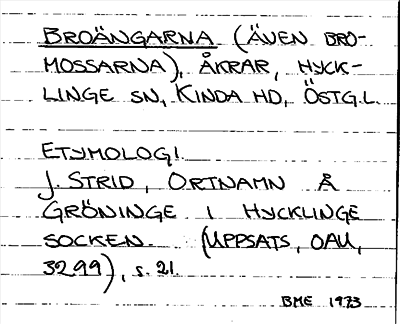 BROÄNGARNA (ÄVEN BRO-
MOSSARNA), ÅKRAR, HYCK-
LINGE SN, KINDA HD, ÖSTG.L.
ETYMOLOGI
J. STRID, ORTNAMN Å
GRÖNINGE I HYCKLINGE
SOCKEN. (UPPSATS, OAU,
3299), s. 21.
BME 1973